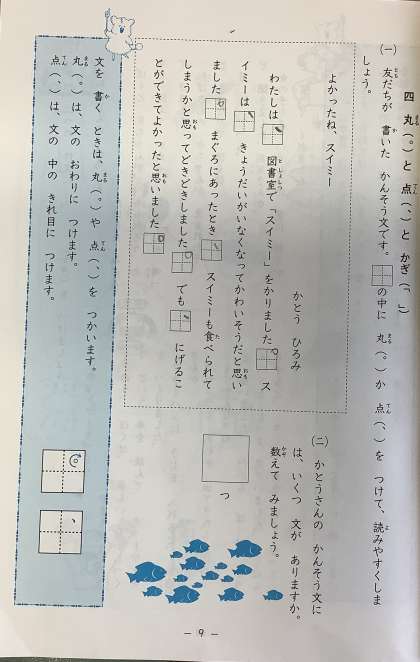 四 丸(。)と 点(、)と かぎ(「 」)
(一) 友だちが 書いた かんそう文です。□の中に 丸(。)か 点(、)を つけて、読みやすくしま
しょう。
よかったね、スイミー
かとう ひろみ
わたしは、図書室で「スイミー」をかりました。ス
イミーは、きょうだいがいなくなってかわいそうだと思い
ました。まぐろにあったとき、スイミーも食べられて
しまうかと思ってどきどきしました。でも、にげるこ
とができてよかったと思いました。
(二) かとうさんの かんそう文に
は、いくつ 文が ありますか。
数えて みましょう。
つ
文を 書く ときは、丸(。)や 点(、)を つかいます。
丸(。)は、文の おわりに つけます。
点(、)は、文の 中の きれ目に つけます。
。
、
― 9 ―